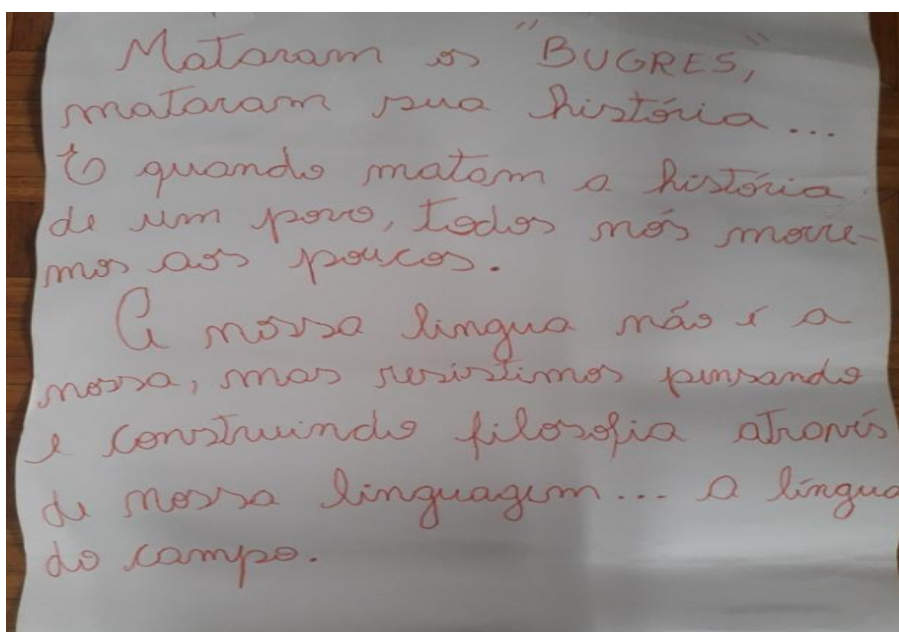 Mataram os "BUGRES,"
mataram sua história...
E quando matam a história
de um povo, todos nós morre-
mos aos poucos.
A nossa lingua não é a
nossa, mas resistimos pensando
e construindo filosofia através
de nossa linguagem... a língua
do campo.